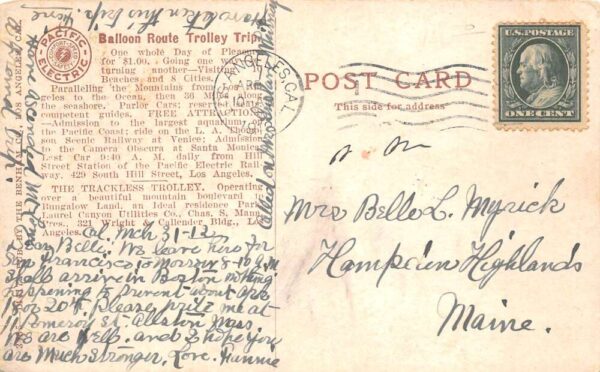 PACIFIC
ELECTRIC
Balloon Route Trolley Trip
One whole Day of Pleasure
for $1.00. Going one way
turning another—Visiting
Beaches and 8 Cities.
Paralleling the Mountains from Los
geles to the Ocean, then 36 Miles along
the seashore. Parlor Cars; reserved
competent guides. FREE ATTRACTIONS
—Admission to the largest aquarium
the Pacific Coast; ride on the L. A. Thomp-
son Scenic Railway at Venice; Admission
to the Camera Obscura at Santa Monica.
Last Car 9:40 A. M. daily from Hill
Street Station of the Pacific Electric Rail-
way. 429 South Hill Street, Los Angeles.
THE TRACKLESS TROLLEY. Operating
over a beautiful mountain boulevard
Bungalow Land. Ideal residence Park
Laurel Canyon Utilities Co., Chas. S. Mann
Pres., 321 Wright & Callender Bldg., Los
Angeles.
Cal. Mch 31-12
Dear Belle: We leave here for
San Francisco to-morrow 8-10 A.M.
Shall arrive in Boston nothing
happening to prevent about Apr
18 or 20th. Please write me at
11 Pomeroy St. Allston Mass
We are well, and I hope you
are much stronger. Love. Fannie
Have taken this trip.
Have ascended Mt
LOS ANGELES, CAL.
POST CARD
This side for address
U.S. POSTAGE
ONE CENT
Mrs Belle L. Myrick
Hampden Highlands
Maine.